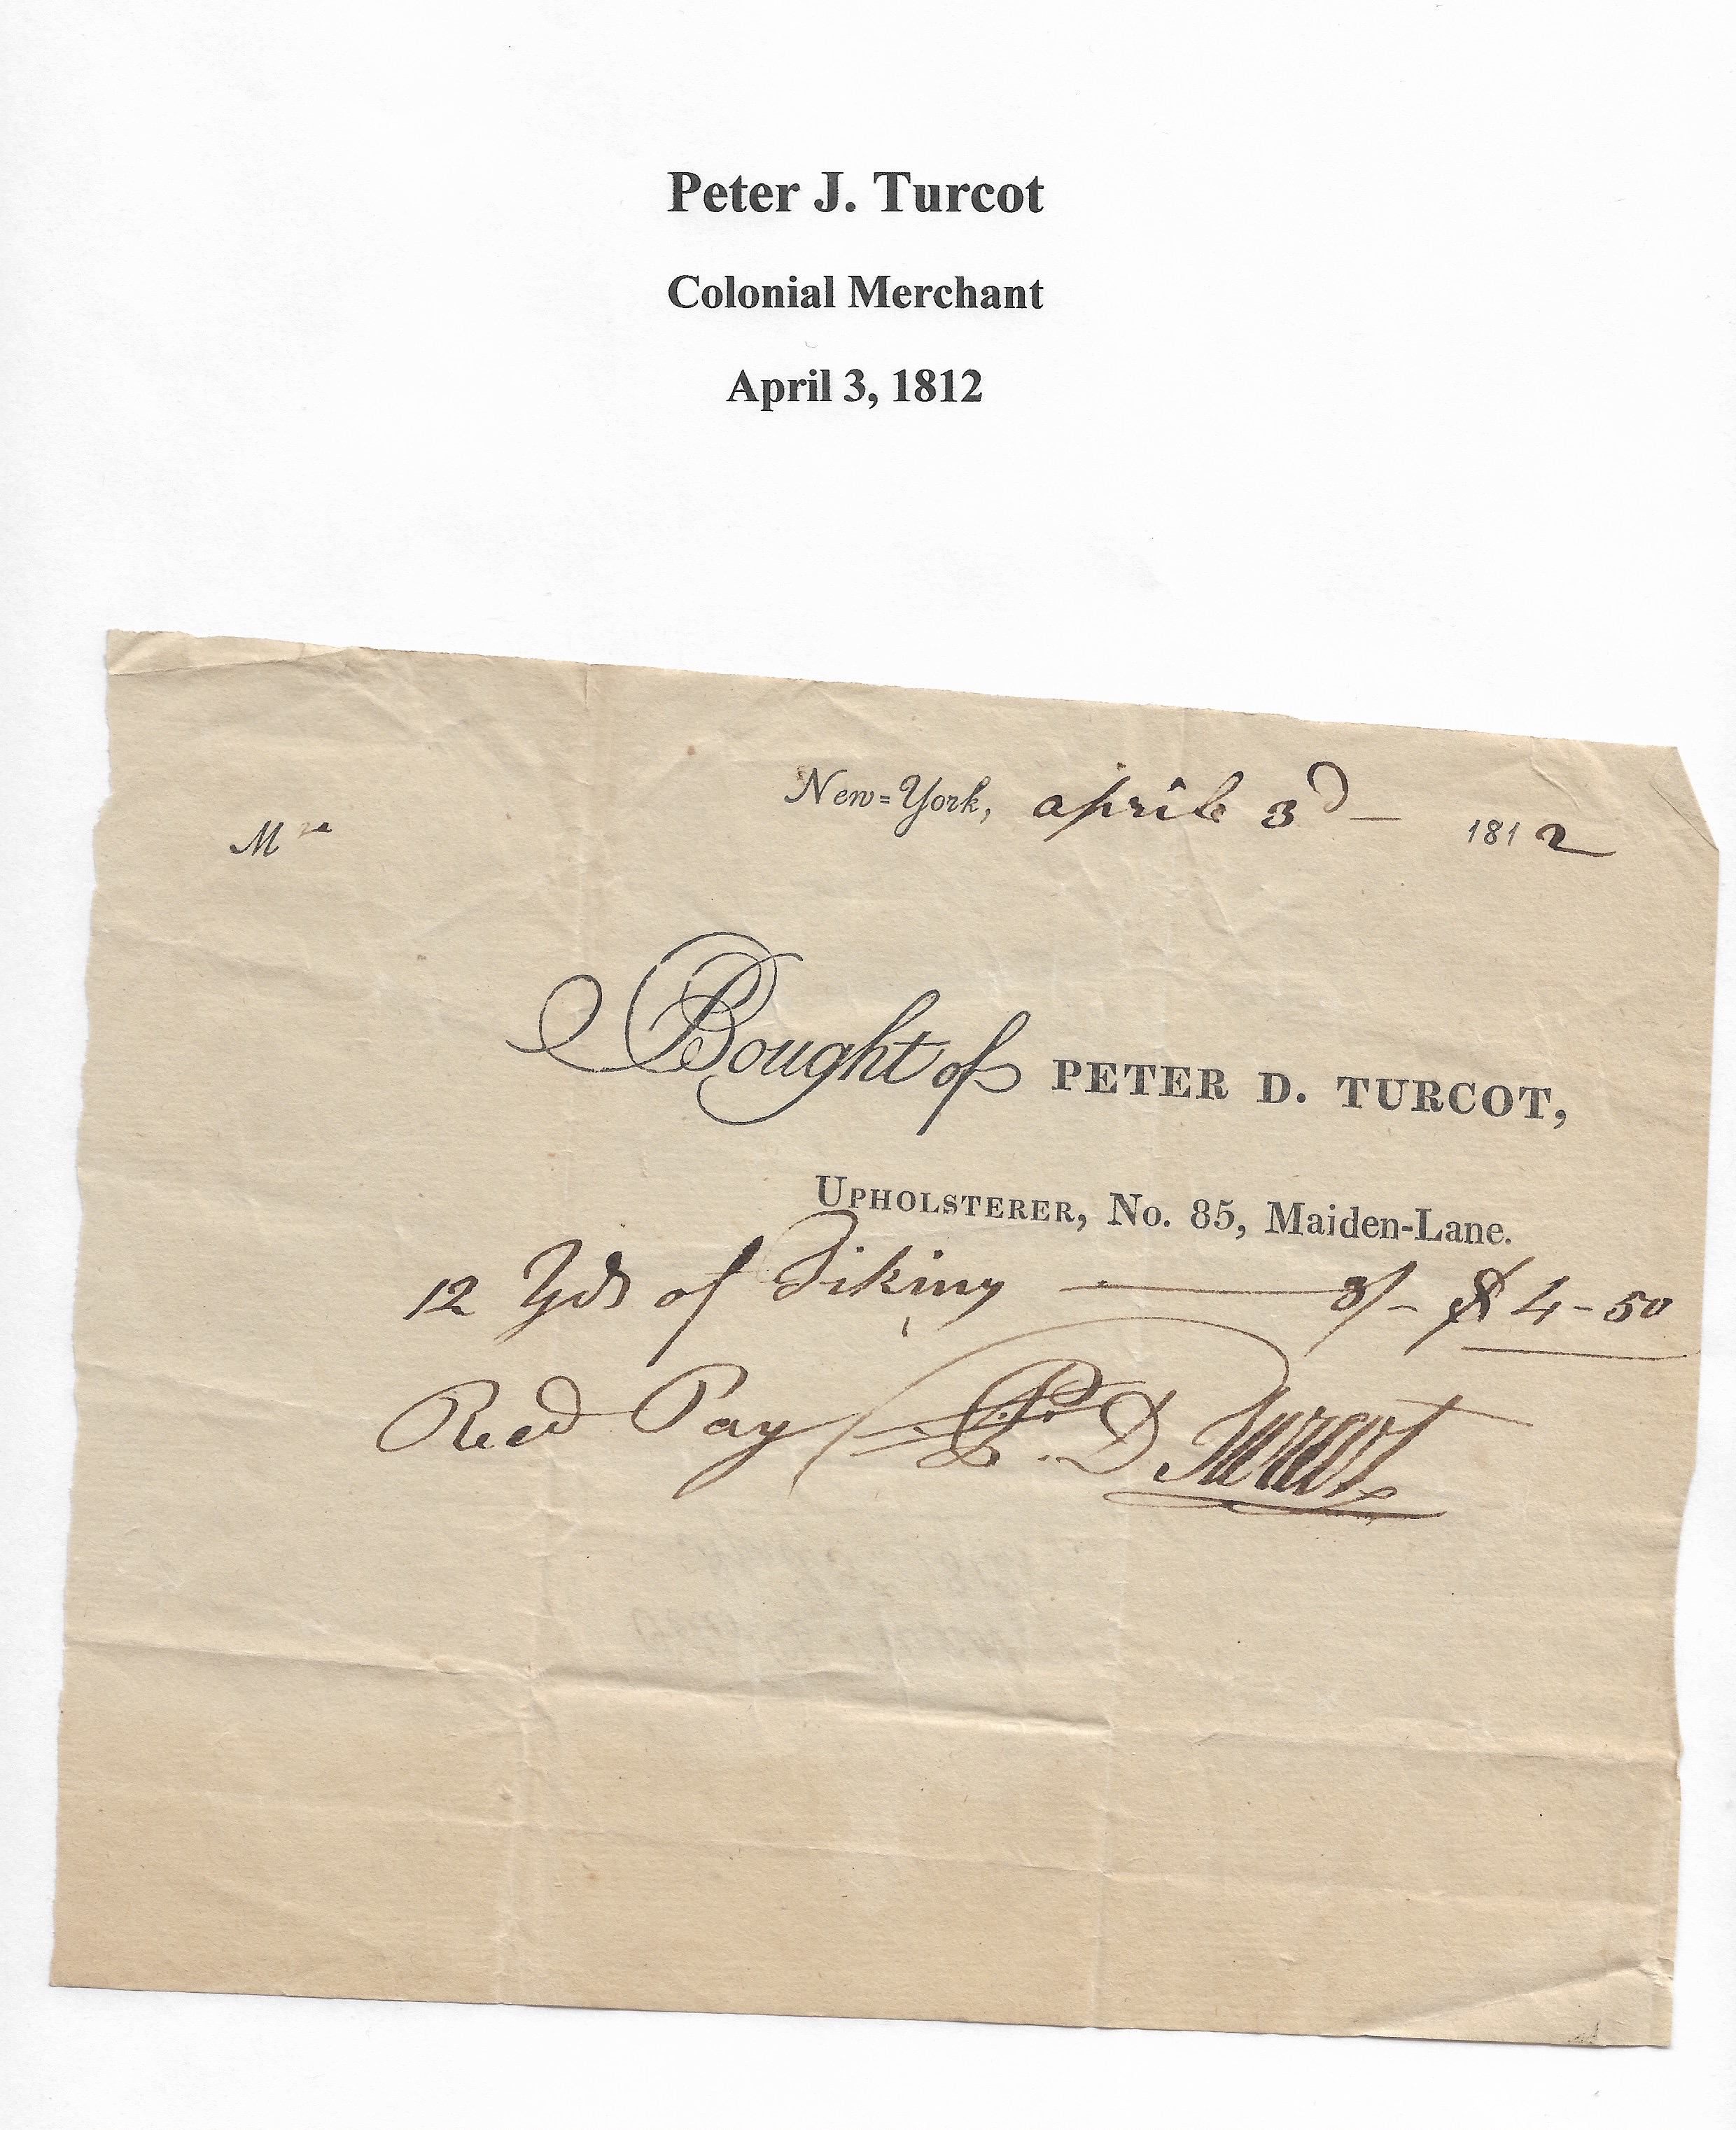 Peter J. Turcot
Colonial Merchant
April 3, 1812
New=York, april 3d — 1812
Mrs
Bought of PETER D. TURCOT,
UPHOLSTERER, No. 85, Maiden-Lane.
12 Yds of Tiking — 3/- $4-50
Recd Pay P. D Turcot